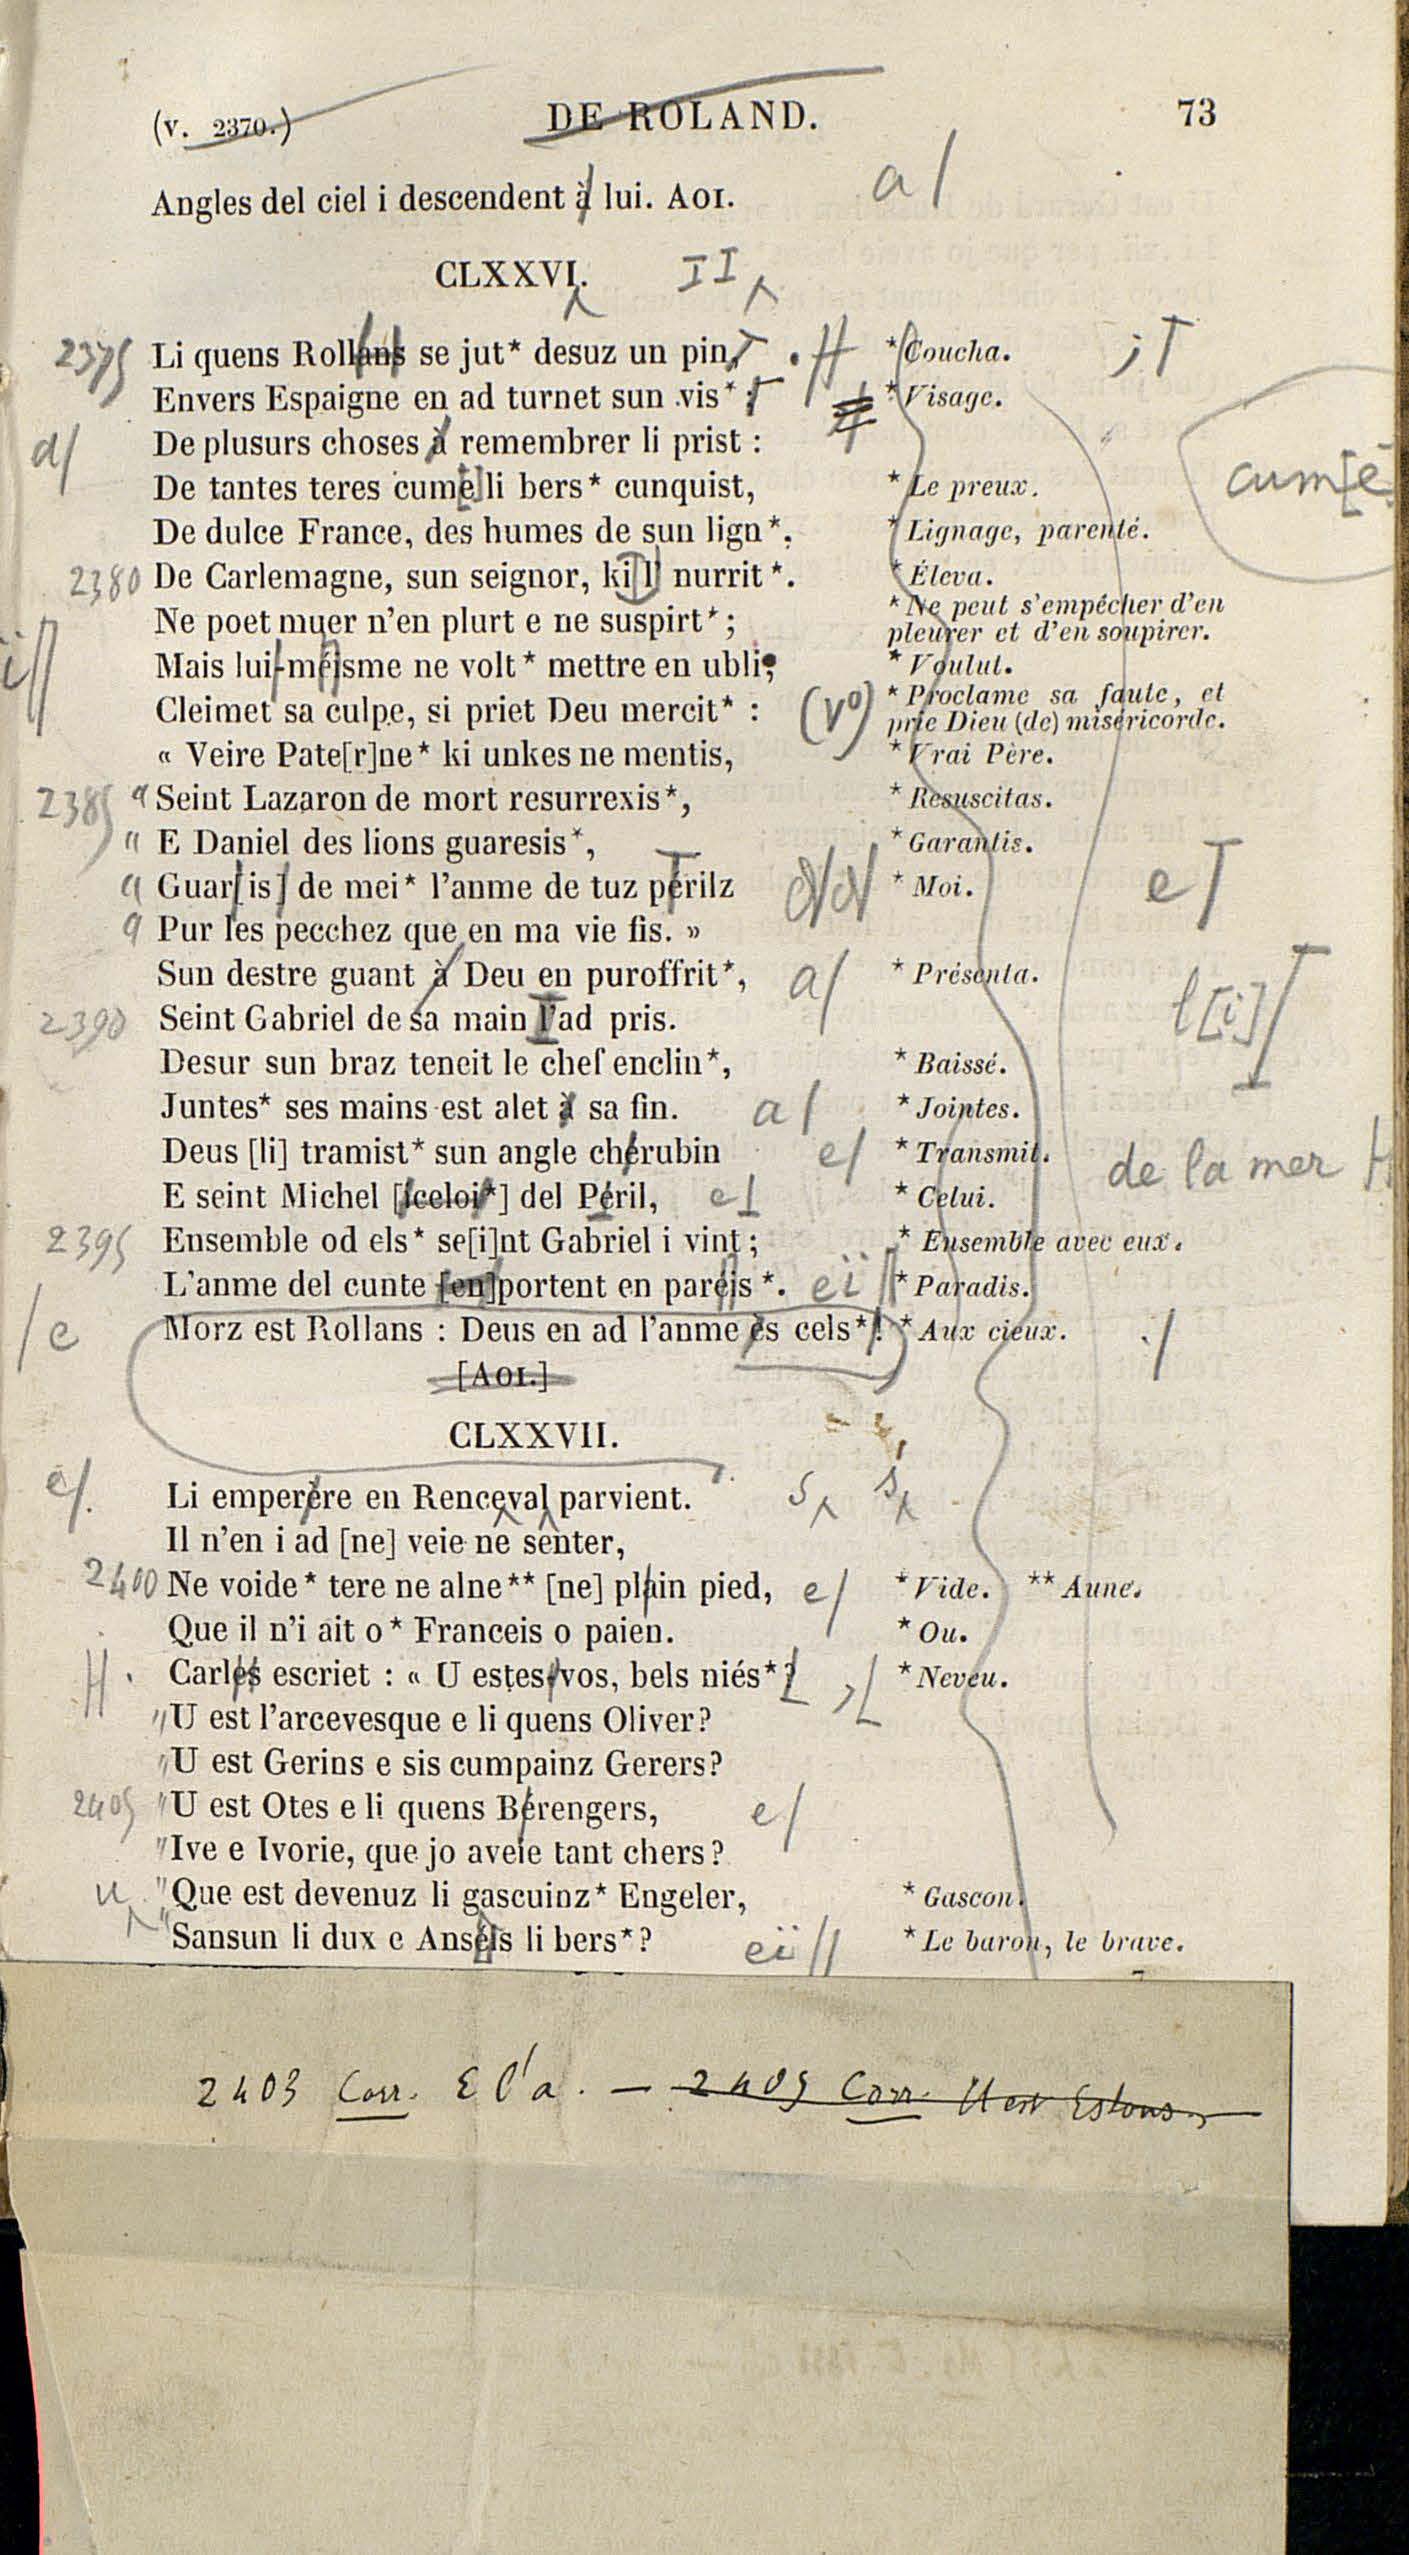 (v. 2370.) DE ROLAND. 73
Angles del ciel i descendent à lui. AOI. a/
CLXXVI. II
2375 Li quens Rollans se jut* desuz un pin, *Coucha. ;
Envers Espaigne en ad turnet sun vis*; *Visage.
a/ De plusurs choses à remembrer li prist :
De tantes teres cume li bers* cunquist, *Le preux. cum[e
De dulce France, des humes de sun lign*, *Lignage, parenté.
2380 De Carlemagne, sun seignor, ki l' nurrit*. *Éleva.
Ne poet muer n'en plurt e ne suspirt*; *Ne peut s'empêcher d'en
pleurer et d'en soupirer.
ï// Mais lui-méisme ne volt* mettre en ubli; *Voulut.
Cleimet sa culpe, si priet Deu mercit* : (vo) *Proclame sa faute, et
prie Dieu (de) miséricorde.
« Veire Pate[r]ne* ki unkes ne mentis, *Vrai Père.
2385 " Seint Lazaron de mort resurrexis*, *Resuscitas.
" E Daniel des lions guaresis*, *Garantis.
" Guar[is] de mei* l'anme de tuz périlz *Moi. e
" Pur les pecchez que en ma vie fis. »
Sun destre guant à Deu en puroffrit*, a/ *Présenta.
2390 Seint Gabriel de sa main l'ad pris. l[i]
Desur sun braz teneit le chef enclin*, *Baissé.
Juntes* ses mains est alet à sa fin. a/ *Jointes.
Deus [li] tramist* sun angle chérubin e/ *Transmit.
E seint Michel [iceloi*] del Péril, e *Celui. de la mer
2395 Ensemble od els* se[i]nt Gabriel i vint; *Ensemble avec eux.
L'anme del cunte [en]portent en paréis*. eï// *Paradis.
/e Morz est Rollans : Deus en ad l'anme ès cels*! *Aux cieux. ./
[AOI.]
CLXXVII.
e/. Li emperère en Renceval parvient. s s
Il n'en i ad [ne] veie ne senter,
2400 Ne voide* tere ne alne** [ne] plain pied, e/ *Vide. **Aune.
Que il n'i ait o* Franceis o paien. *Ou.
Carles escriet : « U estes-vos, bels niés*? , *Neveu.
" U est l'arcevesque e li quens Oliver?
" U est Gerins e sis cumpainz Gerers?
2405 " U est Otes e li quens Bérengers, e/
" Ive e Ivorie, que jo aveie tant chers?
u " Que est devenuz li gascuinz* Engeler, *Gascon.
" Sansun li dux e Anséis li bers*? eï// *Le baron, le brave.
2403 Corr. E l'a. — 2405 Corr. U est Estous.